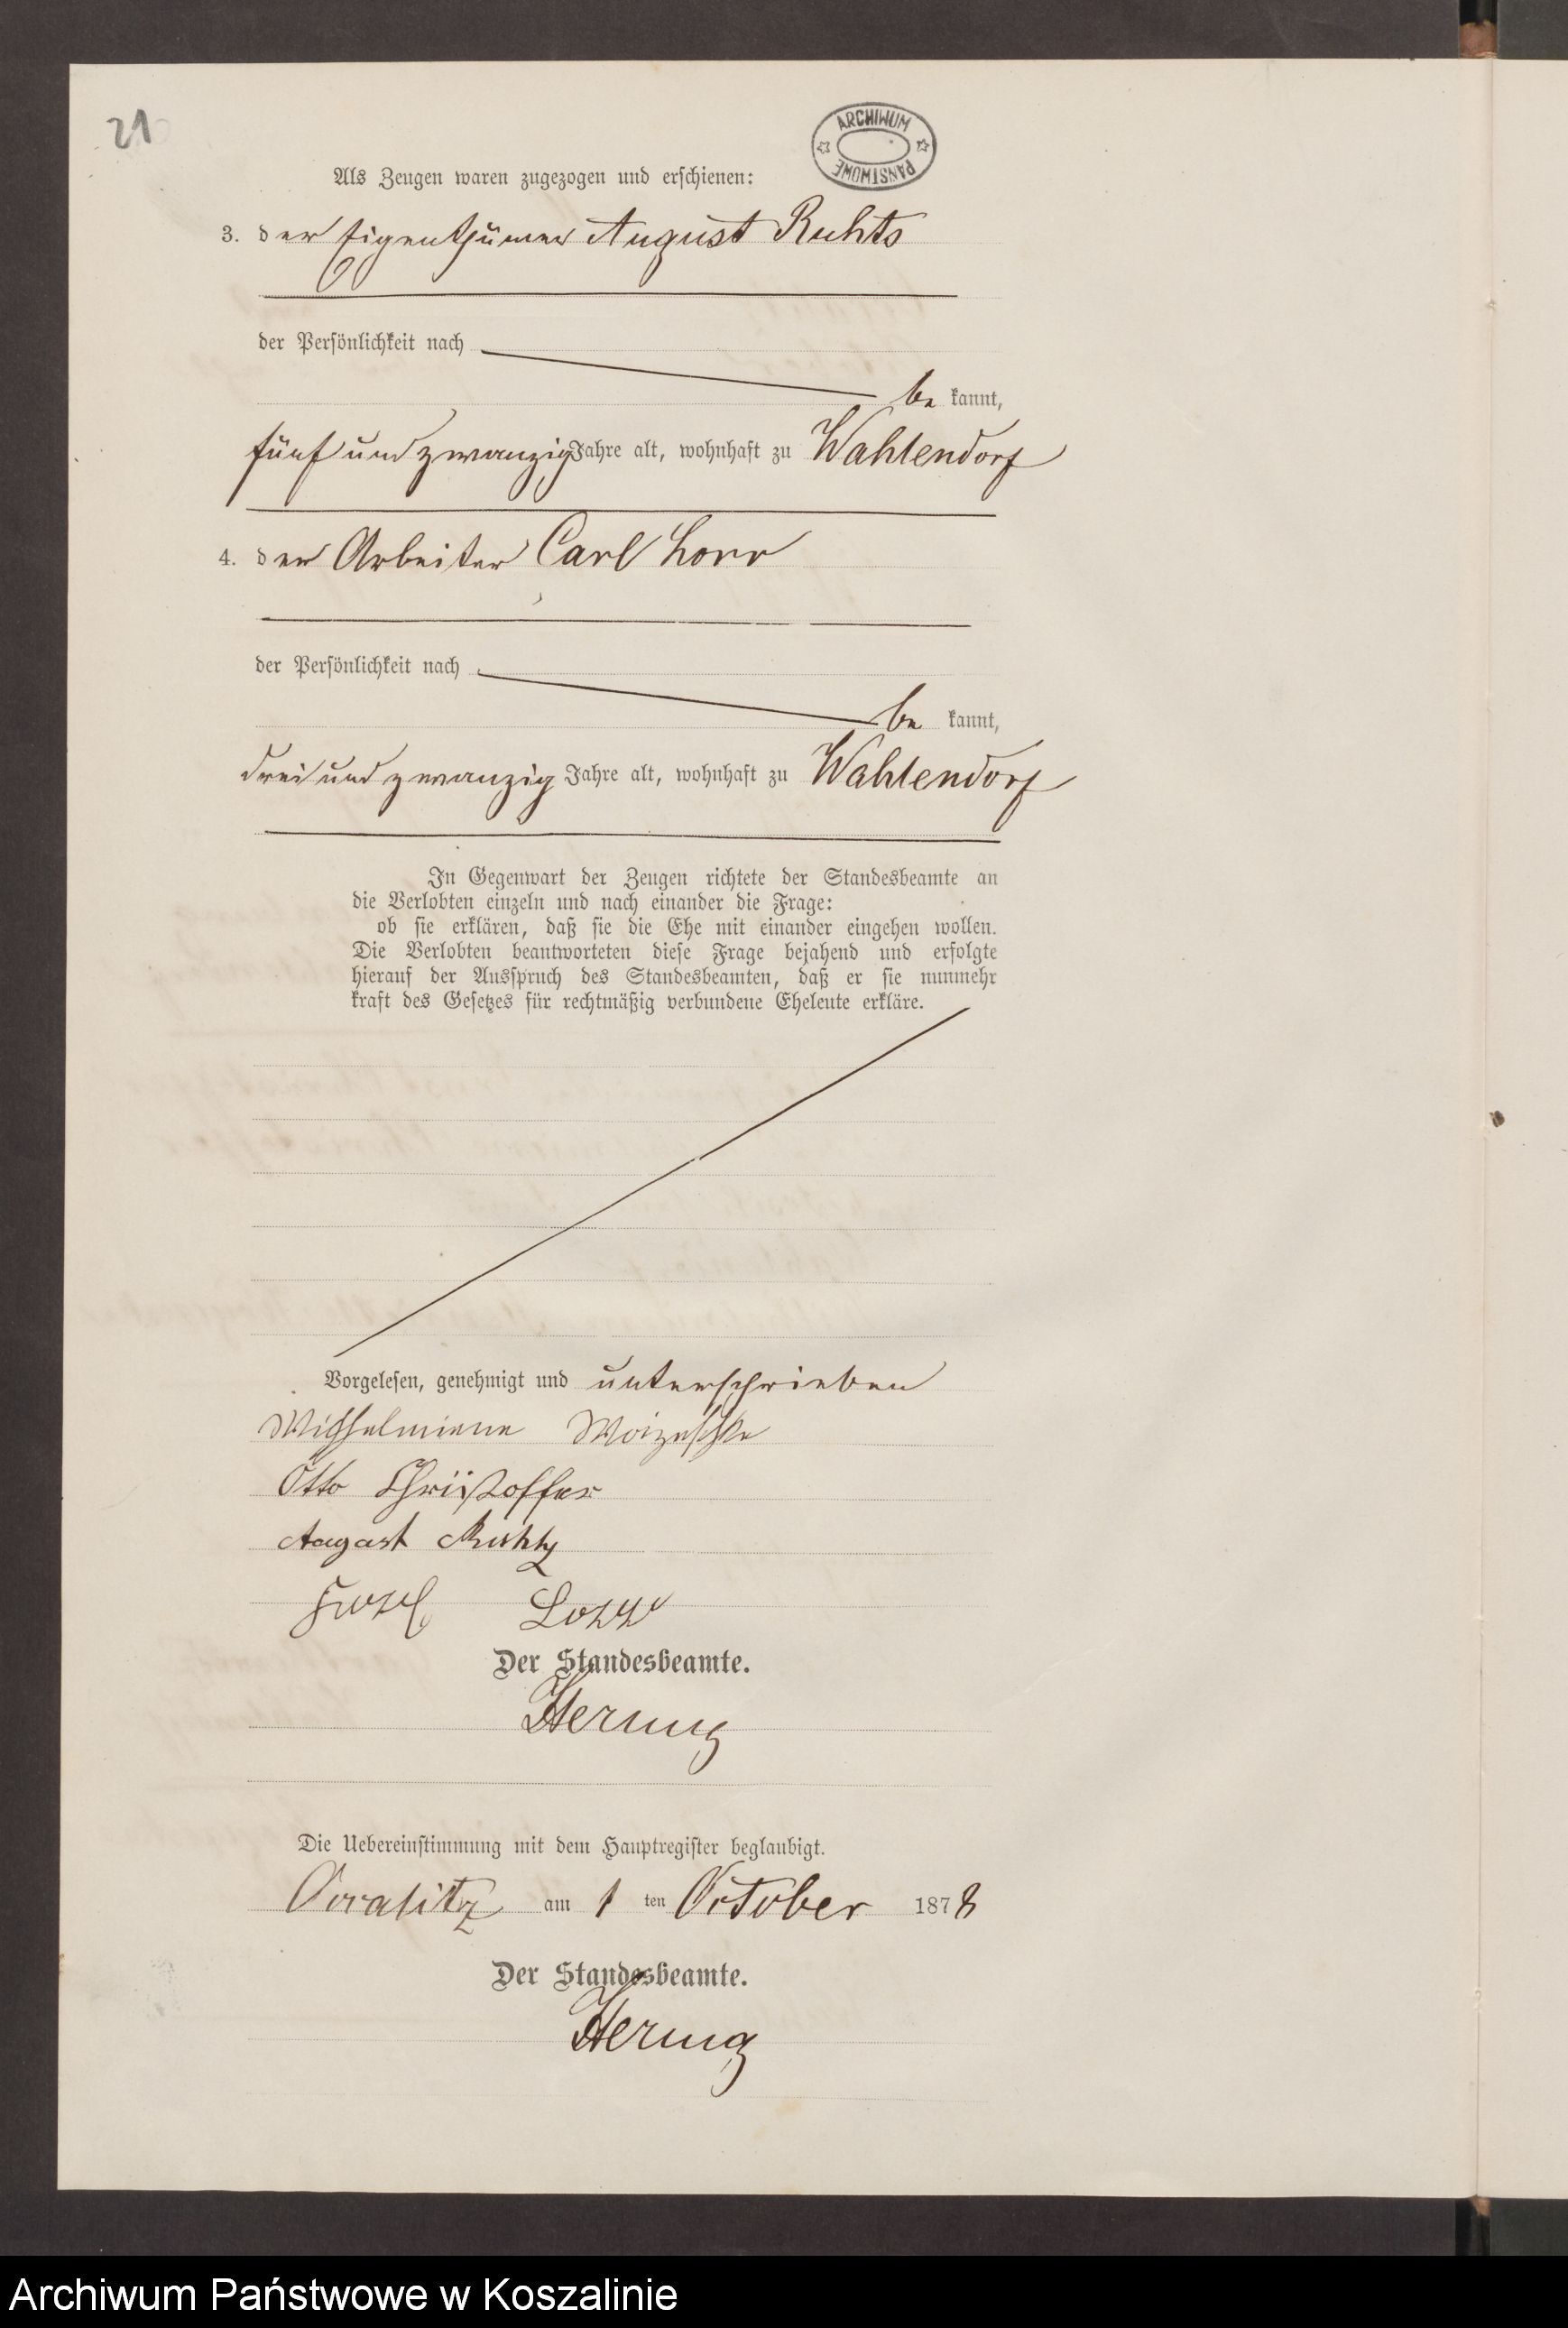 21
ARCHIWUM PAŃSTWOWE
Als Zeugen waren zugezogen und erschienen:
3. der Eigenthümer August Ruhts
der Persönlichkeit nach
be kannt,
fünf und zwanzig Jahre alt, wohnhaft zu Wahlendorf
4. der Arbeiter Carl Lorr
der Persönlichkeit nach
be kannt,
drei und zwanzig Jahre alt, wohnhaft zu Wahlendorf
In Gegenwart der Zeugen richtete der Standesbeamte an
die Verlobten einzeln und nach einander die Frage:
ob sie erklären, daß sie die Ehe mit einander eingehen wollen.
Die Verlobten beantworteten diese Frage bejahend und erfolgte
hierauf der Ausspruch des Standesbeamten, daß er sie nunmehr
kraft des Gesetzes für rechtmäßig verbundene Eheleute erkläre.
Vorgelesen, genehmigt und unterschrieben
Wilhelmiene Woizeschke
Otto Christoffer
August Ruhtz
Lorr
Der Standesbeamte.
Hering
Die Uebereinstimmung mit dem Hauptregister beglaubigt.
am 1 ten October 1878
Der Standesbeamte.
Hering
Archiwum Państwowe w Koszalinie